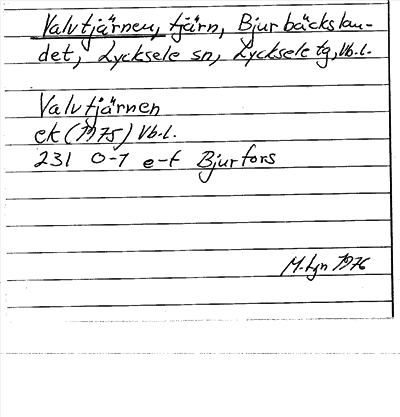 Valvtjärnen, tjärn, Bjurbäckslan-
det, Lycksele sn, Lycksele tg, Vb.l.
Valvtjärnen
ek (1975) Vb.l.
231 0-1 e-f Bjurfors
1976